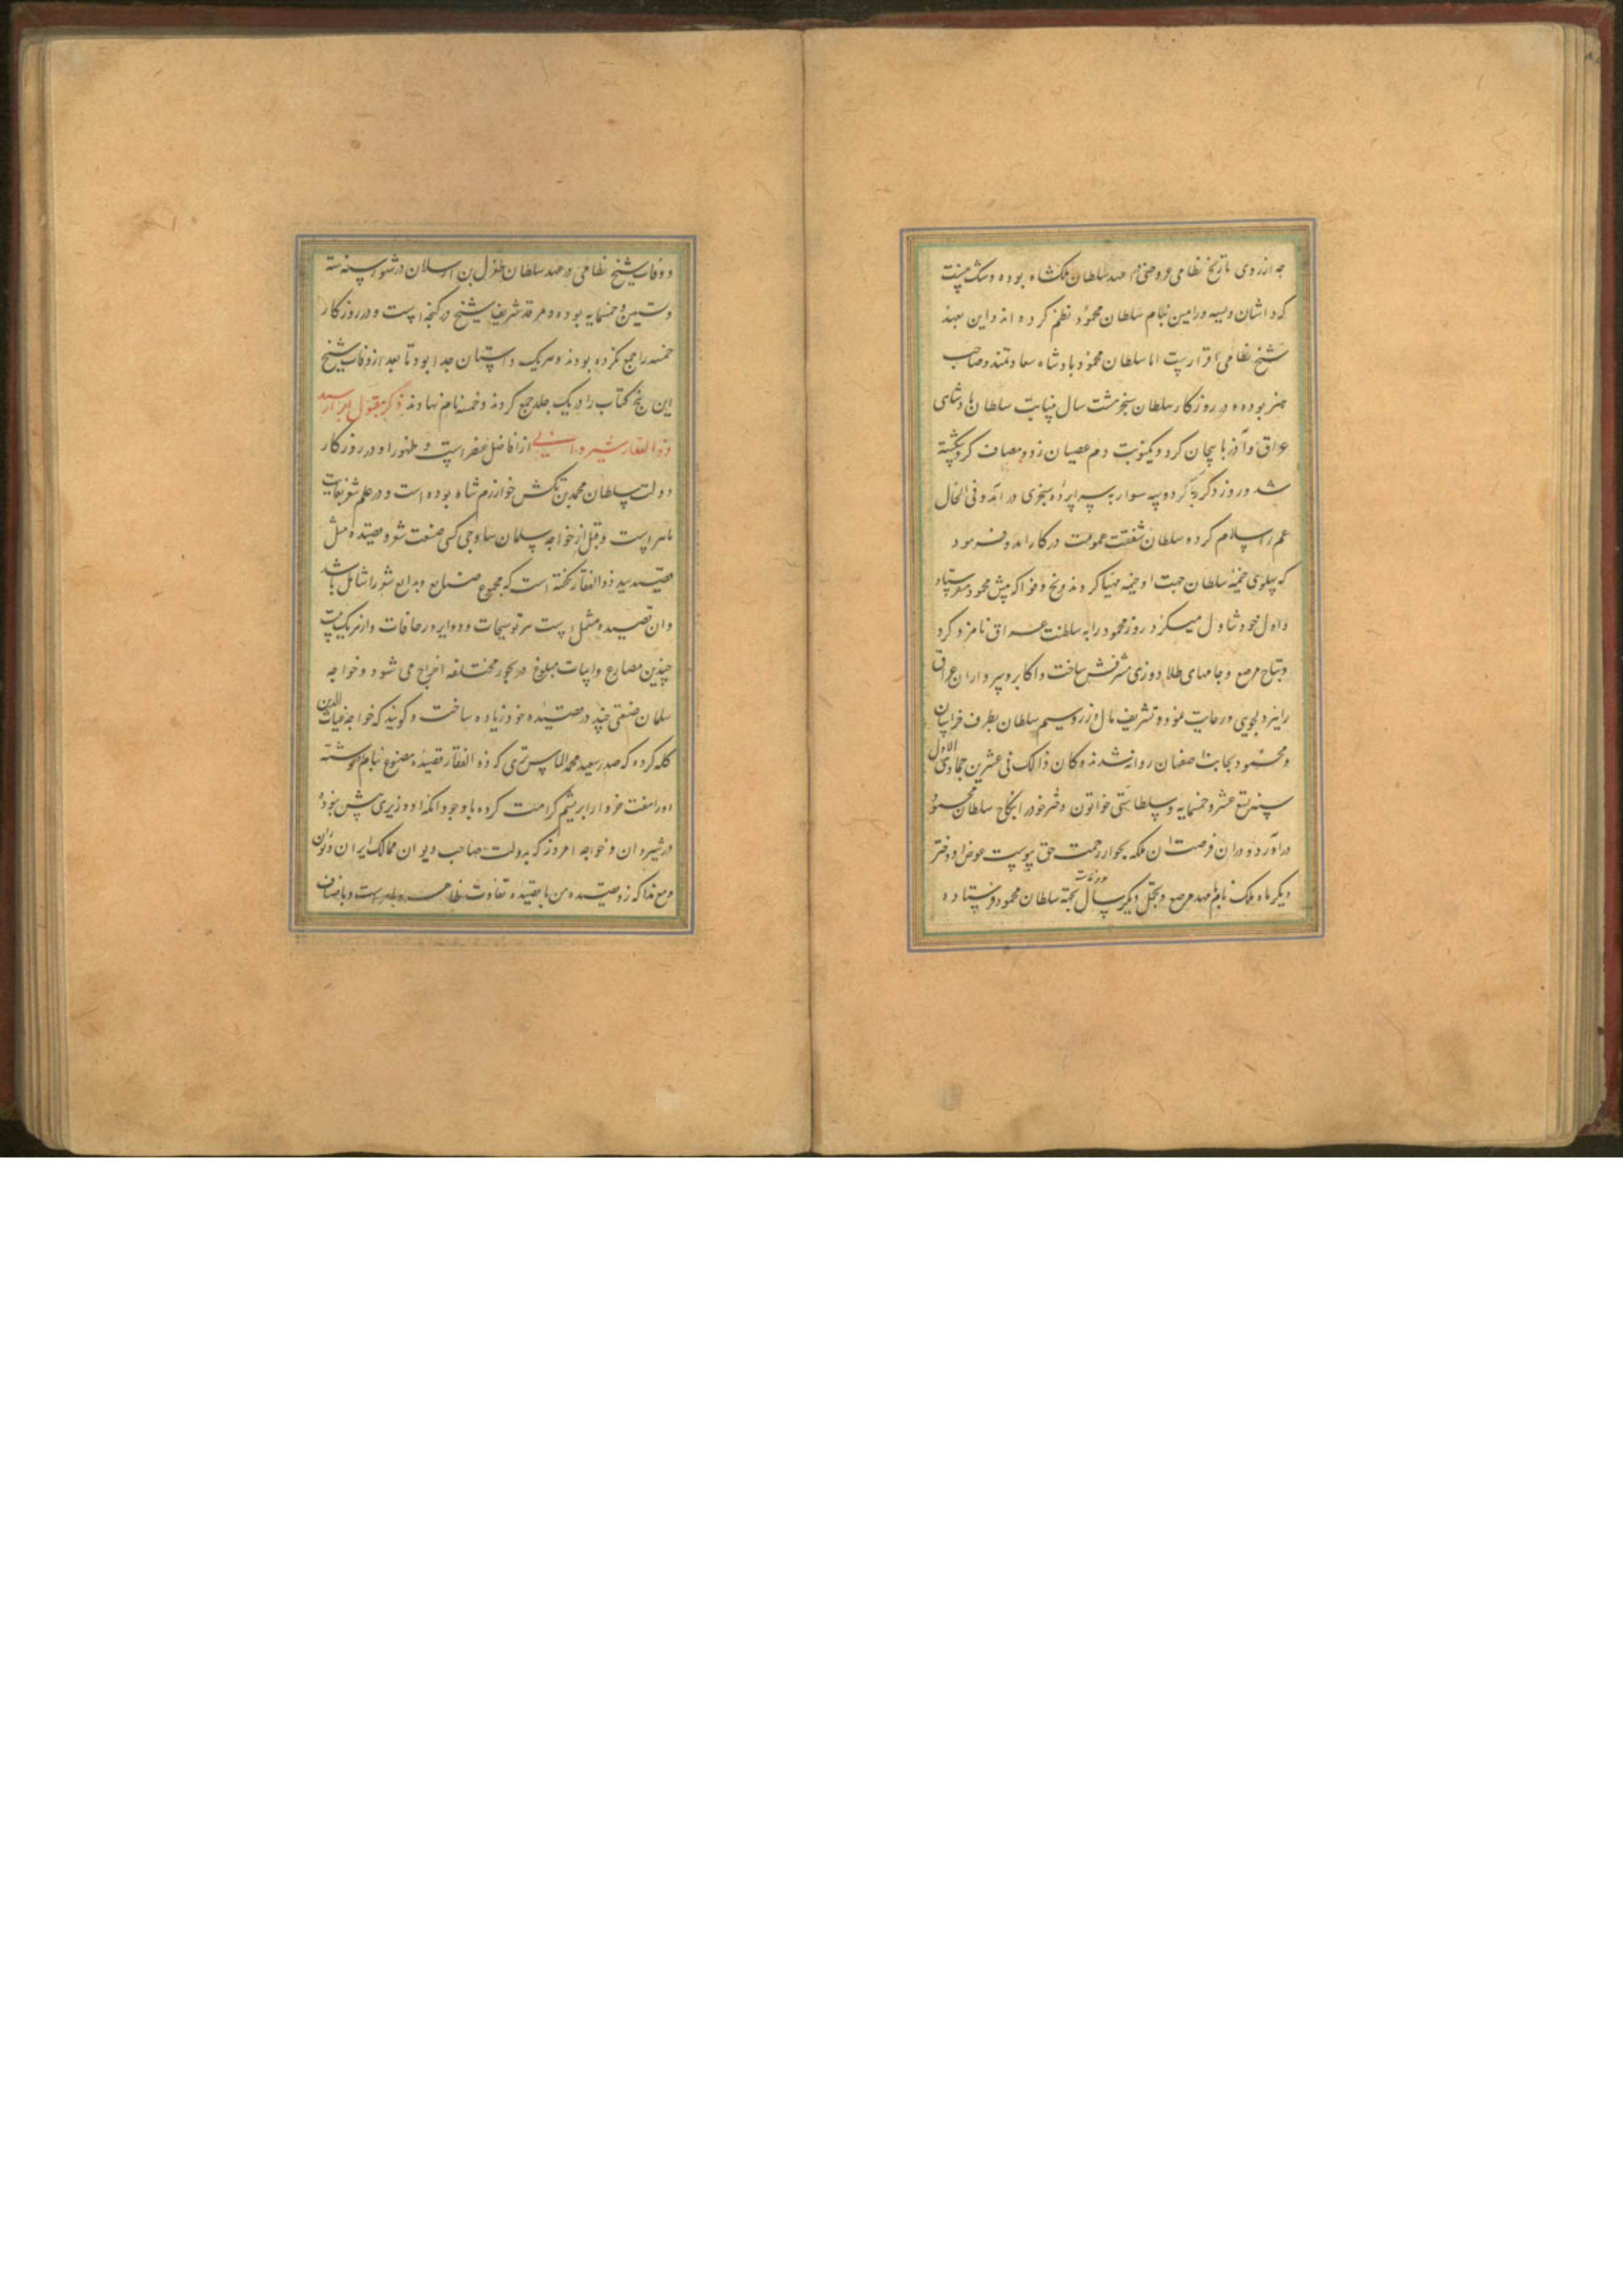 چه از روی تاریخ نظامی عروضی در عهد سلطان ملکشاه بوده وشک نیست
که داستان ویسه ورامین بنام سلطان محمود نظم کرده اند واین بعهد
شیخ نظامی اقرب است اما سلطان محمود پادشاه سعادتمند وصاحب
هنر بوده ودر روزکار سلطان سنجر هشت سال بنیابت سلطان پادشاهی
عراق وآذربایجان کرد ویکنوبت دم عصیان زد ومصاف کرد وشکسته
شد وروز دکر با سواری بسراپرده سنجری در آمد وفی الحال
عم را سلام کرد وسلطان شفقت عمومت در کار آمد وفرمود
که پهلوی خیمه سلطان جهت او خیمه مهیا کردند ویخ وفواکه پیش محمود میفرستاد
واول خود تناول میکرد روز محمود را به سلطنت عراق نامزد کرد
وبتاج مرصع وجامهای طلا دوزی مشرفش ساخت واکابر وسرداران عراق
را نیز دلجویی ورعایت نمود وتشریف مال وزر وسیم سلطان بطرف خراسان
ومحمود بجانب اصفهان روانه شدند وکان ذالک فی عشرین جمادی الاول
سنه تسع عشر وخمسمایه وسلطان ستی خواتون دختر خود را بنکاح سلطان محمود
در آورد ودر آن فرصت آن ملکه بجوار رحمت حق پیوست عوض او دختر
دیکر ماه ملک نام با مهد مرصع وتجمل دیکر سال بجهة سلطان محمود فرستاده
ووفات شیخ نظامی در عهد سلطان طغرل بن ارسلان در شهور سنه سته
وستین وخمسمایه بوده ومرقد شریف شیخ در کنجه است ودر روزکار
خمسه را جمع نکرده بودند وهر یک داستان جدا بود تا بعد از وفات شیخ
این پنج کتاب را در یک جلد جمع کردند وخمسه نام نهادند ذکر مقبول ابرار سید
ذوالفقار شیروانی از افاضل عصر است وظهور او در روزکار
دولت سلطان محمد بن تکش خوارزم شاه بوده است ودر علم شعر بغایت
ماهر است وقبل از خواجه سلمان ساوجی کسی صنعت شعر وقصیده مثل
قصیده سید ذوالفقار نکفته است که مجموع صنایع وبدایع شعر را شامل باشد
وان قصیده مشتمل است بر توشیحات ودوایر وزحافات واز هر یک بیت
چندین مصارع وابیات مبلوغ در بحور مختلفه اخراج می شود وخواجه
سلمان صنعتی چند در قصیده خود زیاده ساخت وکویند که خواجه غیاث الدین
کله کرده که صدر سعید محمد الماستری که ذوالفقار قصیده مصنوع بنام او نوشته
او را هفت خروار ابریشم کرامت کرده با وجود آنکه او وزیری بیش نبود
در شیروان وخواجه امروز که بدولت صاحب دیوان ممالک ایران وتوران
ومع هذا که از قصیده من تا بقصیده تفاوت ظاهر وباهر است وبانصاف